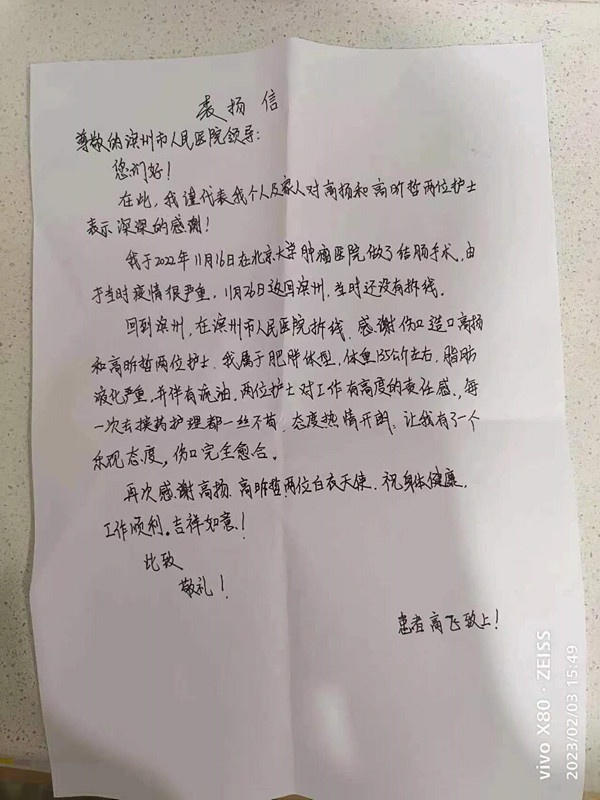 表扬信
尊敬的滨州市人民医院领导:
您们好!
在此,我谨代表我个人及家人对高扬和高昕哲两位护士
表示深深的感谢!
我于2022年11月16日在北京大学肿瘤医院做了结肠手术,由
于当时疫情很严重,11月26日返回滨州,当时还没有拆线。
回到滨州,在滨州市人民医院拆线,感谢伤口造口高扬
和高昕哲两位护士,我属于肥胖体型,体重135公斤左右,脂肪
液化严重,并伴有流油,两位护士对工作有高度的责任感,每
一次去换药护理都一丝不苟,态度热情开朗,让我有了一个
乐观态度,伤口完全愈合。
再次感谢高扬、高昕哲两位白衣天使,祝身体健康,
工作顺利。吉祥如意!
此致
敬礼!
患者高飞敬上!
vivo X80 · ZEISS
2023/02/03 15:49